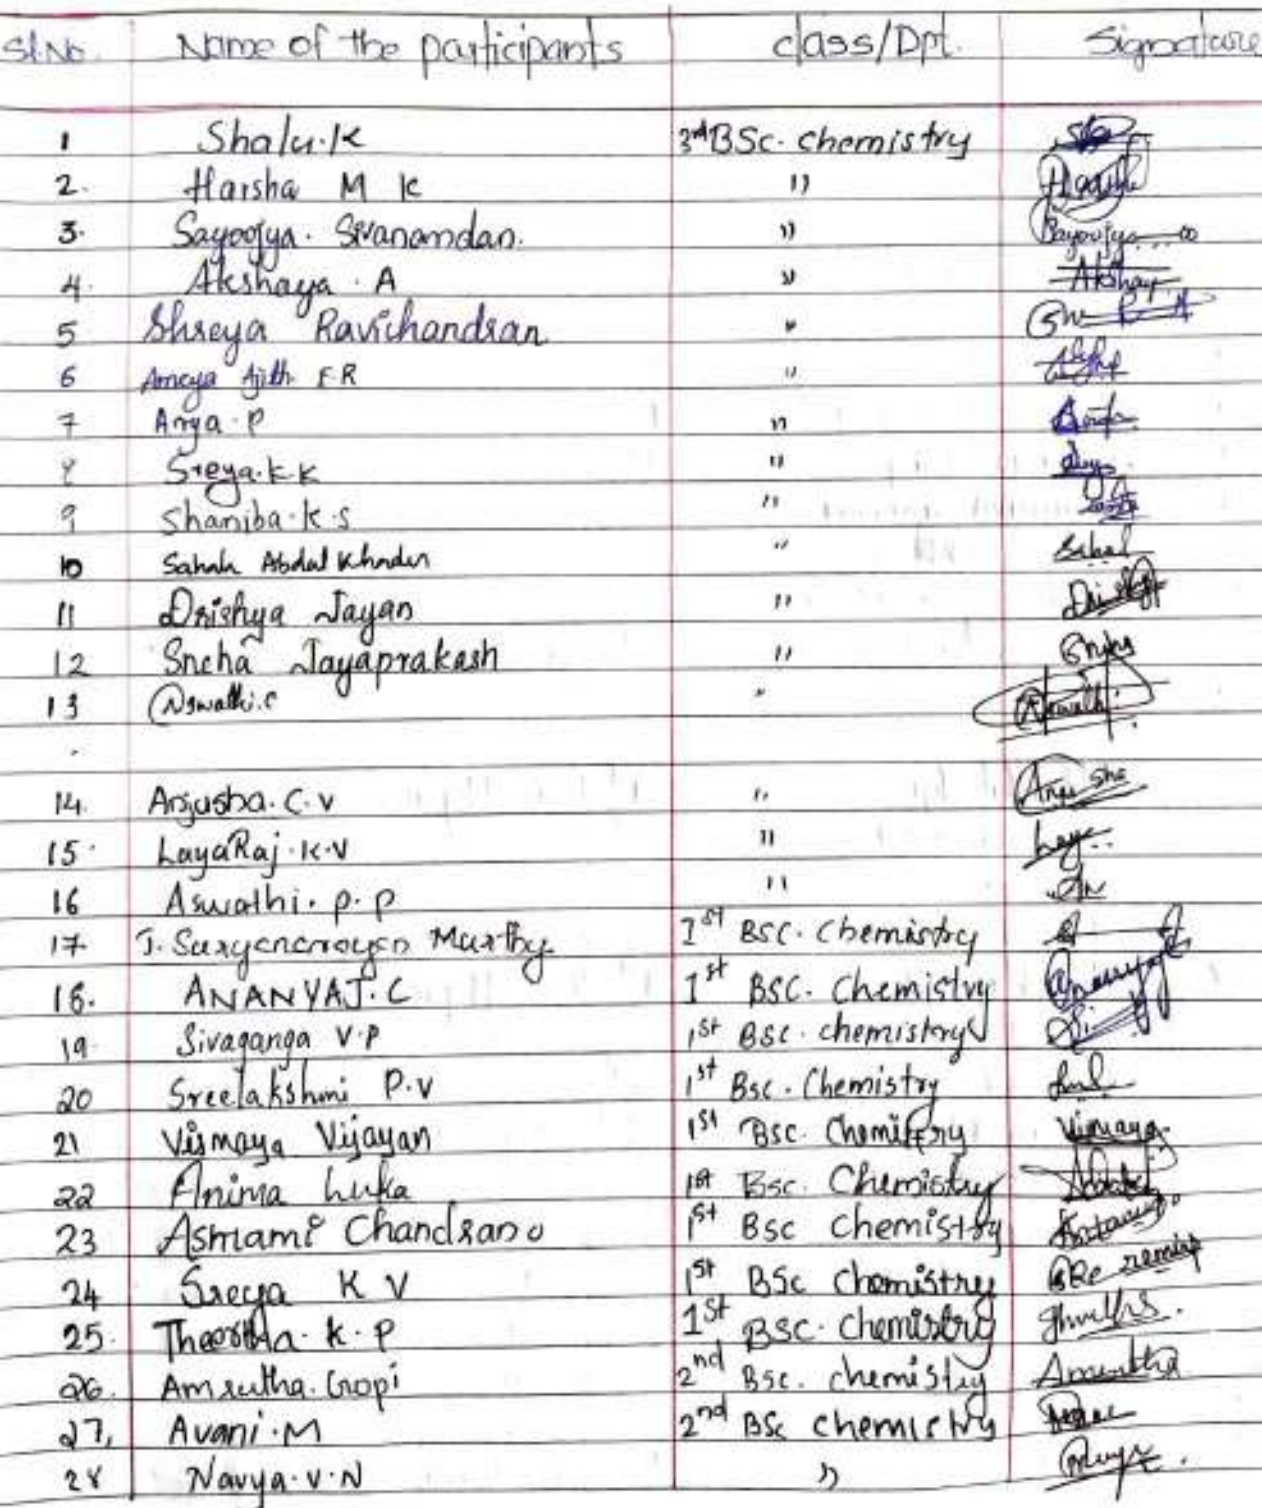 Sl.No. Name of the participants class/Dpt. Signature
1 Shalu.K 3rd BSc. Chemistry
2. Harsha M K "
3. Sayoojya. Sivanandan. " Sayoojya
4. Akshaya. A " Akshay
5 Shreya Ravichandran "
6 Ameya Ajith F.R "
7 Arya.P "
8 Sreya.K.K "
9 Shaniba.K.S "
10 Sahala Abdul Khader "
11 Drishya Jayan "
12 Sneha Jayaprakash "
13 Aswathi.C " Aswathi
14. Anjusha.C.V " Anjusha
15. LayaRaj.K.V "
16 Aswathi.P.P "
17. J. Suryanarayan Murthy 1st BSC. Chemistry
18. ANANYA J.C 1st BSC. Chemistry
19. Sivaganga V.P 1st BSC. chemistry
20 Sreelakshmi P.V 1st Bsc. Chemistry
21 Vismaya Vijayan 1st Bsc. Chemistry Vismaya
22 Anima Luka 1st Bsc. Chemistry
23 Ashtami Chandran 1st BSC Chemistry
24 Sreya K V 1st BSc Chemistry
25. Theertha.K.P 1st BSC. Chemistry
26. Amrutha.Gopi 2nd BSC. chemistry Amrutha
27, Avani.M 2nd BSc chemistry
28 Navya.V.N "